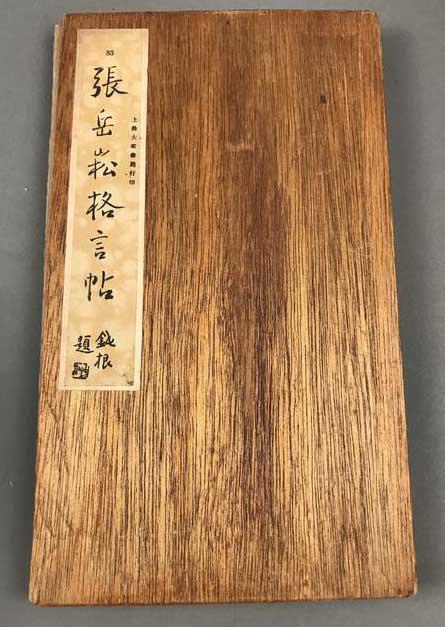 83
張岳崧格言帖
上海大眾書局行印
鈍根
題